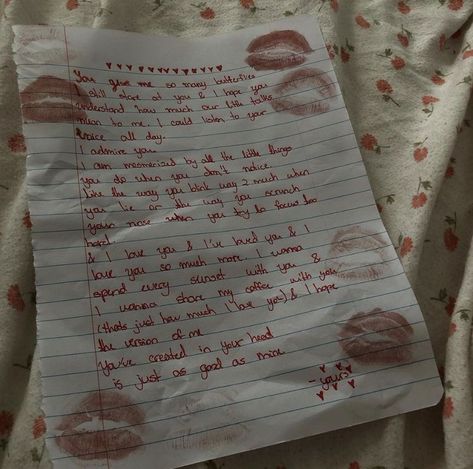 You give me so many butterflies
I still stare at you & I hope you
understand how much our little talks
mean to me. I could listen to your
voice all day.
I admire you.
I am mesmerized by all the little things
you do when you don't notice.
Like the way you blink way 2 much when
you lie or the way you scrunch
your nose when you try to focus too
hard.
& I love you & I've loved you & I
love you so much more. I wanna
spend every sunset with you &
I wanna share my coffee with you
(thats just how much I love you) & I hope
the version of me
You've created in your head
is just as good as mine
- yours